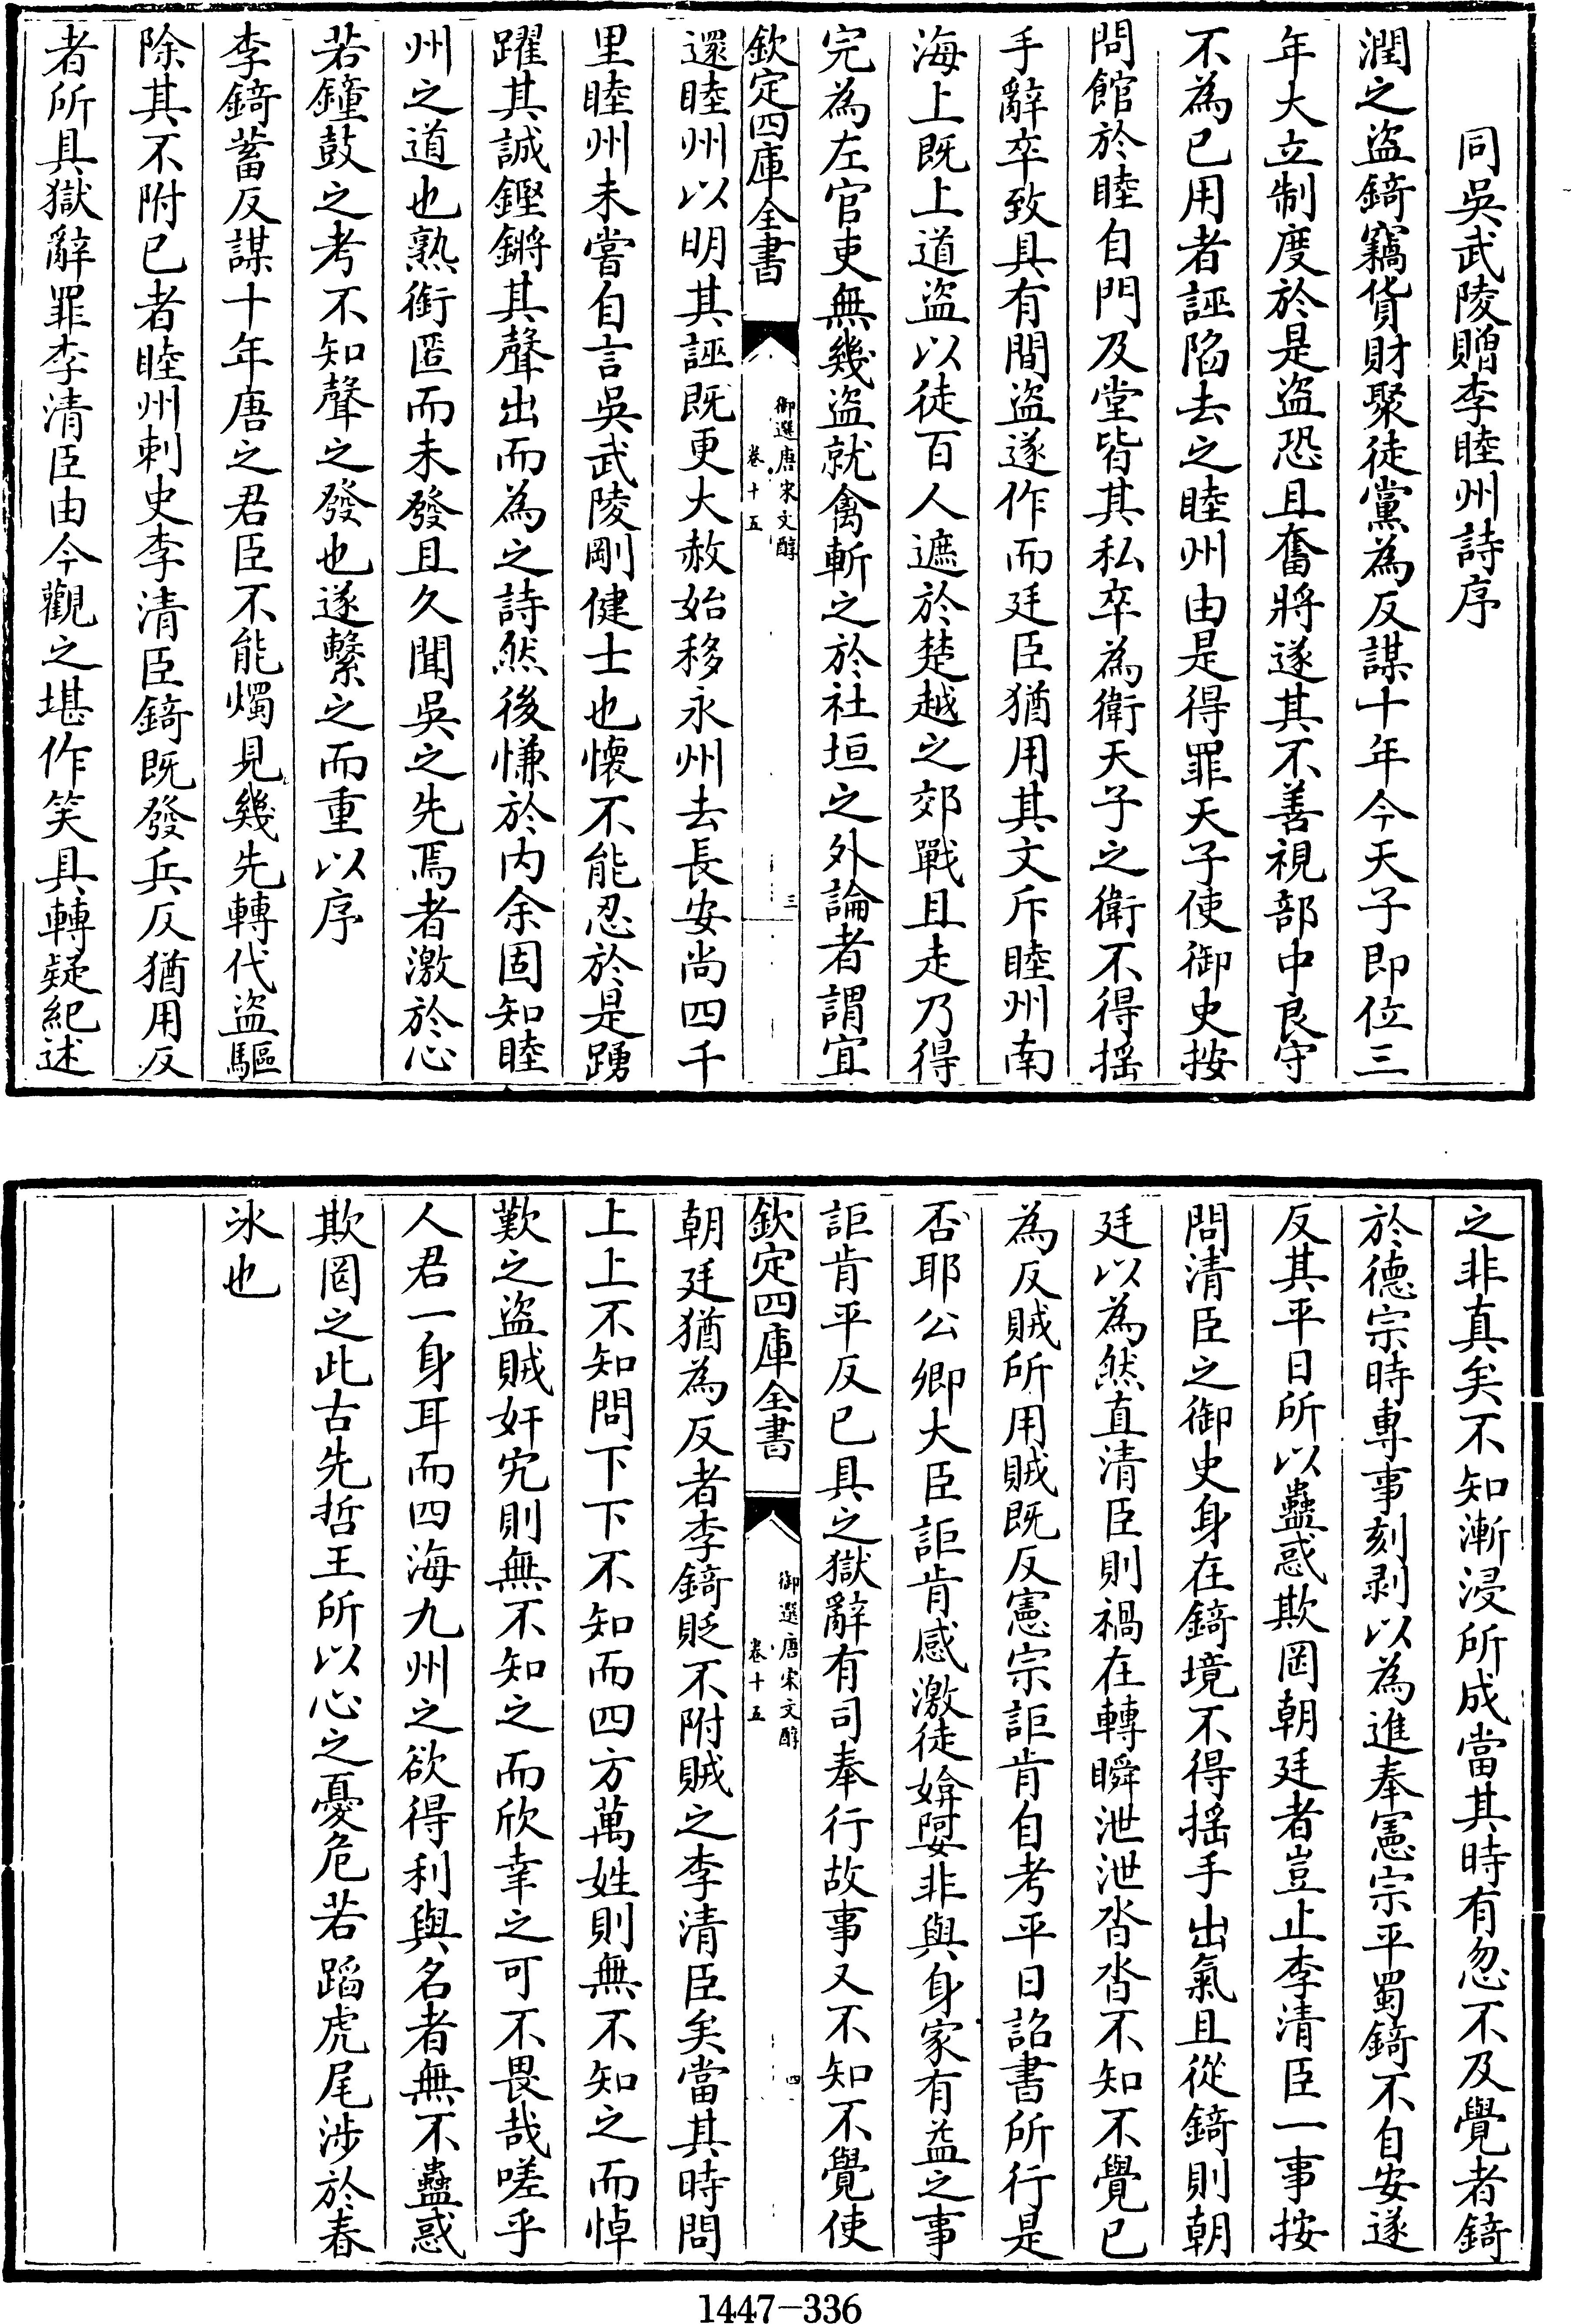 同吳武陵贈李睦州詩序
潤之盜錡竊貨財聚徒黨為反謀十年今天子即位三
年大立制度於是盜恐且奮將遂其不善視部中良守
不為已用者誣陷去之睦州由是得罪天子使御史按
問館於睦自門及堂皆其私卒為衛天子之衛不得搖
手辭卒致具有間盜遂作而廷臣猶用其文斥睦州南
海上既上道盜以徒百人遮於楚越之郊戰且走乃得
完為左官吏無幾盜就禽斬之於社垣之外論者謂宜
欽定四庫全書
御選唐宋文醇
卷十五
三
還睦州以明其誣既更大赦始移永州去長安尚四千
里睦州未嘗自言吳武陵剛健士也懷不能忍於是踴
躍其誠鏗鏘其聲出而為之詩然後慊於內余固知睦
州之道也熟銜匿而未發且久聞吳之先焉者激於心
若鐘鼓之考不知聲之發也遂繫之而重以序
李錡蓄反謀十年唐之君臣不能燭見幾先轉代盜驅
除其不附已者睦州刺史李清臣錡既發兵反猶用反
者所具獄辭罪李清臣由今觀之堪作笑具轉疑紀述
之非真矣不知漸浸所成當其時有忽不及覺者錡
於德宗時專事刻剥以為進奉憲宗平蜀錡不自安遂
反其平日所以蠱惑欺罔朝廷者豈止李清臣一事按
問清臣之御史身在錡境不得搖手出氣且從錡則朝
廷以為然直清臣則禍在轉瞬泄泄沓沓不知不覺已
為反賊所用賊既反憲宗詎肯自考平日詔書所行是
否耶公卿大臣詎肯感激徒媕婀非與身家有益之事
詎肯平反已具之獄辭有司奉行故事又不知不覺使
欽定四庫全書
御選唐宋文醇
卷十五
四
朝廷猶為反者李錡貶不附賊之李清臣矣當其時問
上上不知問下下不知而四方萬姓則無不知之而悼
歎之盜賊奸宄則無不知之而欣幸之可不畏哉嗟乎
人君一身耳而四海九州之欲得利與名者無不蠱惑
欺罔之此古先哲王所以心之憂危若蹈虎尾涉於春
冰也
1447-336